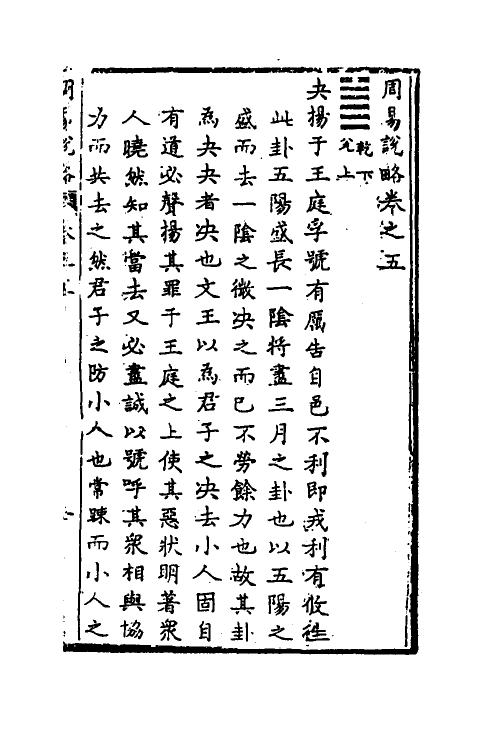 周易說略卷之五
乾下
兌上
夬揚于王庭孚號有厲告自邑不利即戎利有攸徃
此卦五陽盛長一陰將盡三月之卦也以五陽之
盛而去一陰之微決之而已不勞餘力也故其卦
為夬夬者决也文王以為君子之决去小人固自
有道必聲揚其罪于王庭之上使其惡狀明著衆
人曉然知其當去又必盡誠以號呼其衆相與協
力而共去之然君子之防小人也常踈而小人之